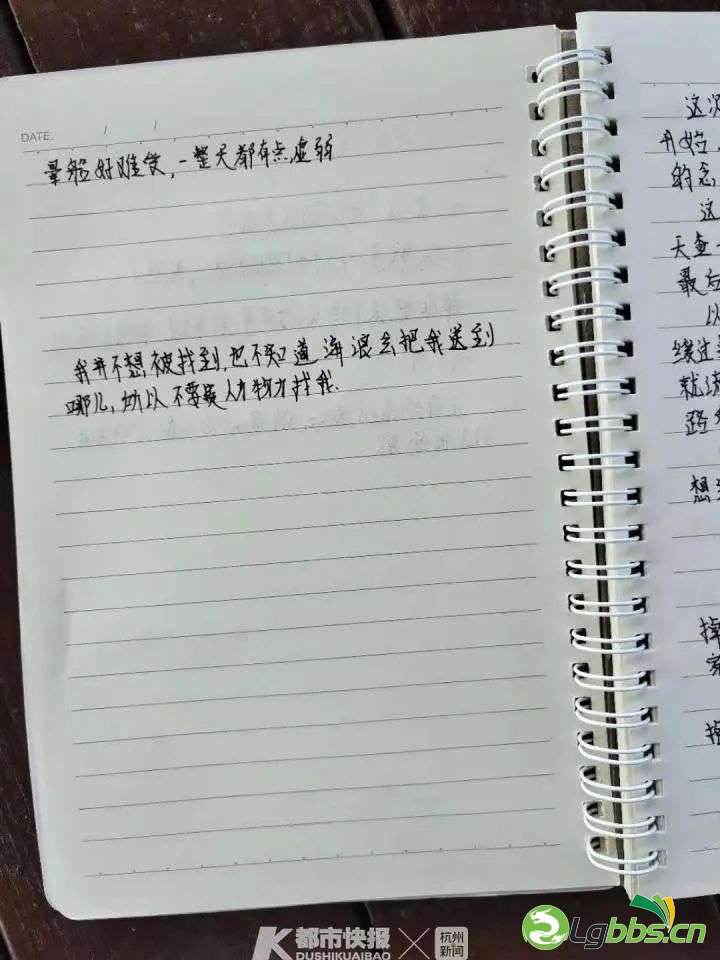 DATE.
晕船好难受，一整天都有点虚弱
我并不想被找到，也不知道海浪会把我送到
哪儿，所以不要费人力物力找我.
这次
开始
的念
这
天查一
最后
以
缘过
就
路
想
掉
家
都市快报
DUSHIKUAIBAO
杭州
新闻
Lgbbs.cn